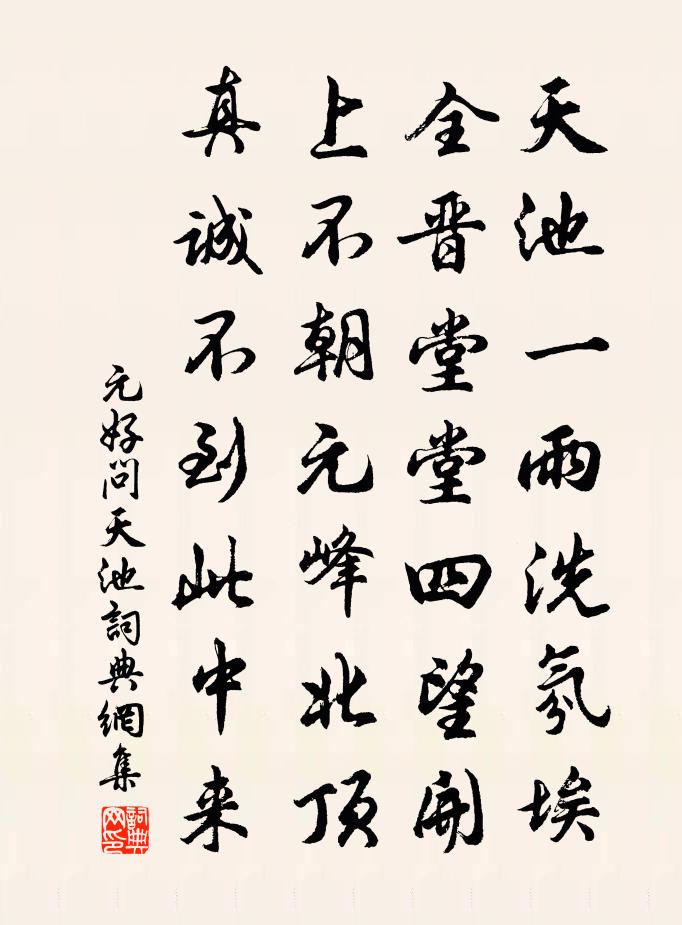 天池一雨洗氛埃
全晋堂堂四望開
上不朝元峰北頂
真誠不到此中来
元好問天池詞典網集
詞典网印